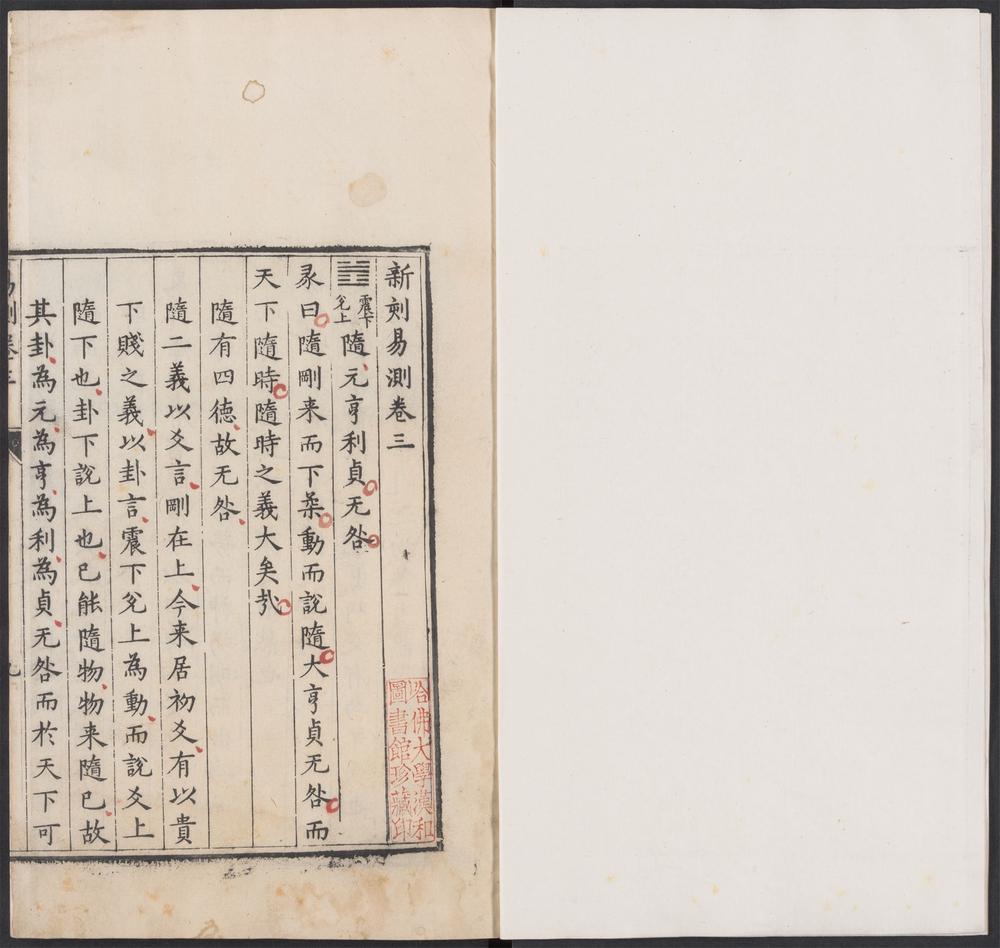 新刻易測卷三
䷐震下兊上隨元亨利貞无咎
彖曰隨剛来而下柔動而說隨大亨貞无咎而
天下隨時隨時之義大矣㢤
隨有四德故无咎
隨二義以爻言剛在上今来居初爻有以貴
下賤之義以卦言震下兊上為動而說爻上
隨下也卦下說上也已能隨物物来隨已故
其卦為元為亨為利為貞无咎而於天下可
哈佛大學漢和
圖書館珍藏印